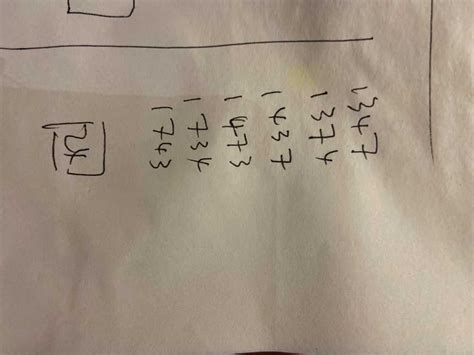 1347
1374
1437
1473
1734
1743
24